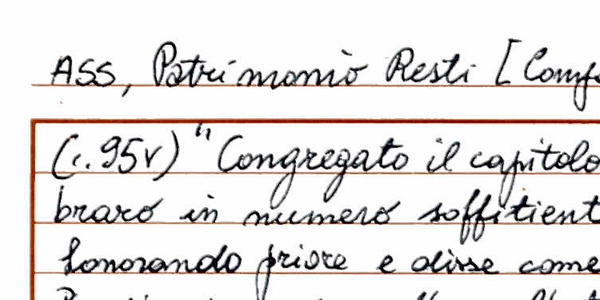 ASS, Patrimonio Resti [Comp
(c. 95v) "Congregato il capitolo
braro in numero soffitient
honorando priore e disse come